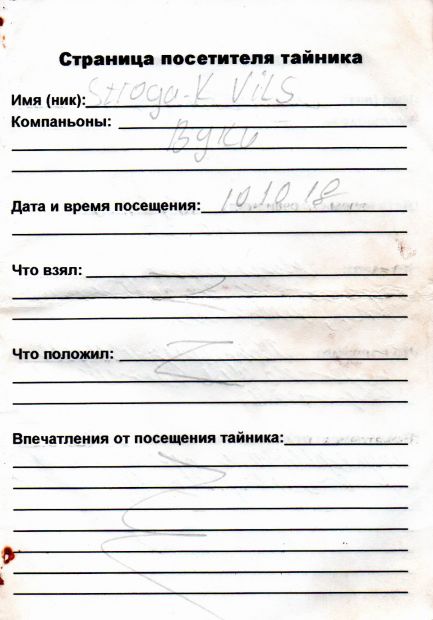 Страница посетителя тайника
Имя (ник): Stroga-K Vils
Компаньоны: Вуки
Дата и время посещения: 10.10.18
Что взял:
Что положил:
Впечатления от посещения тайника: